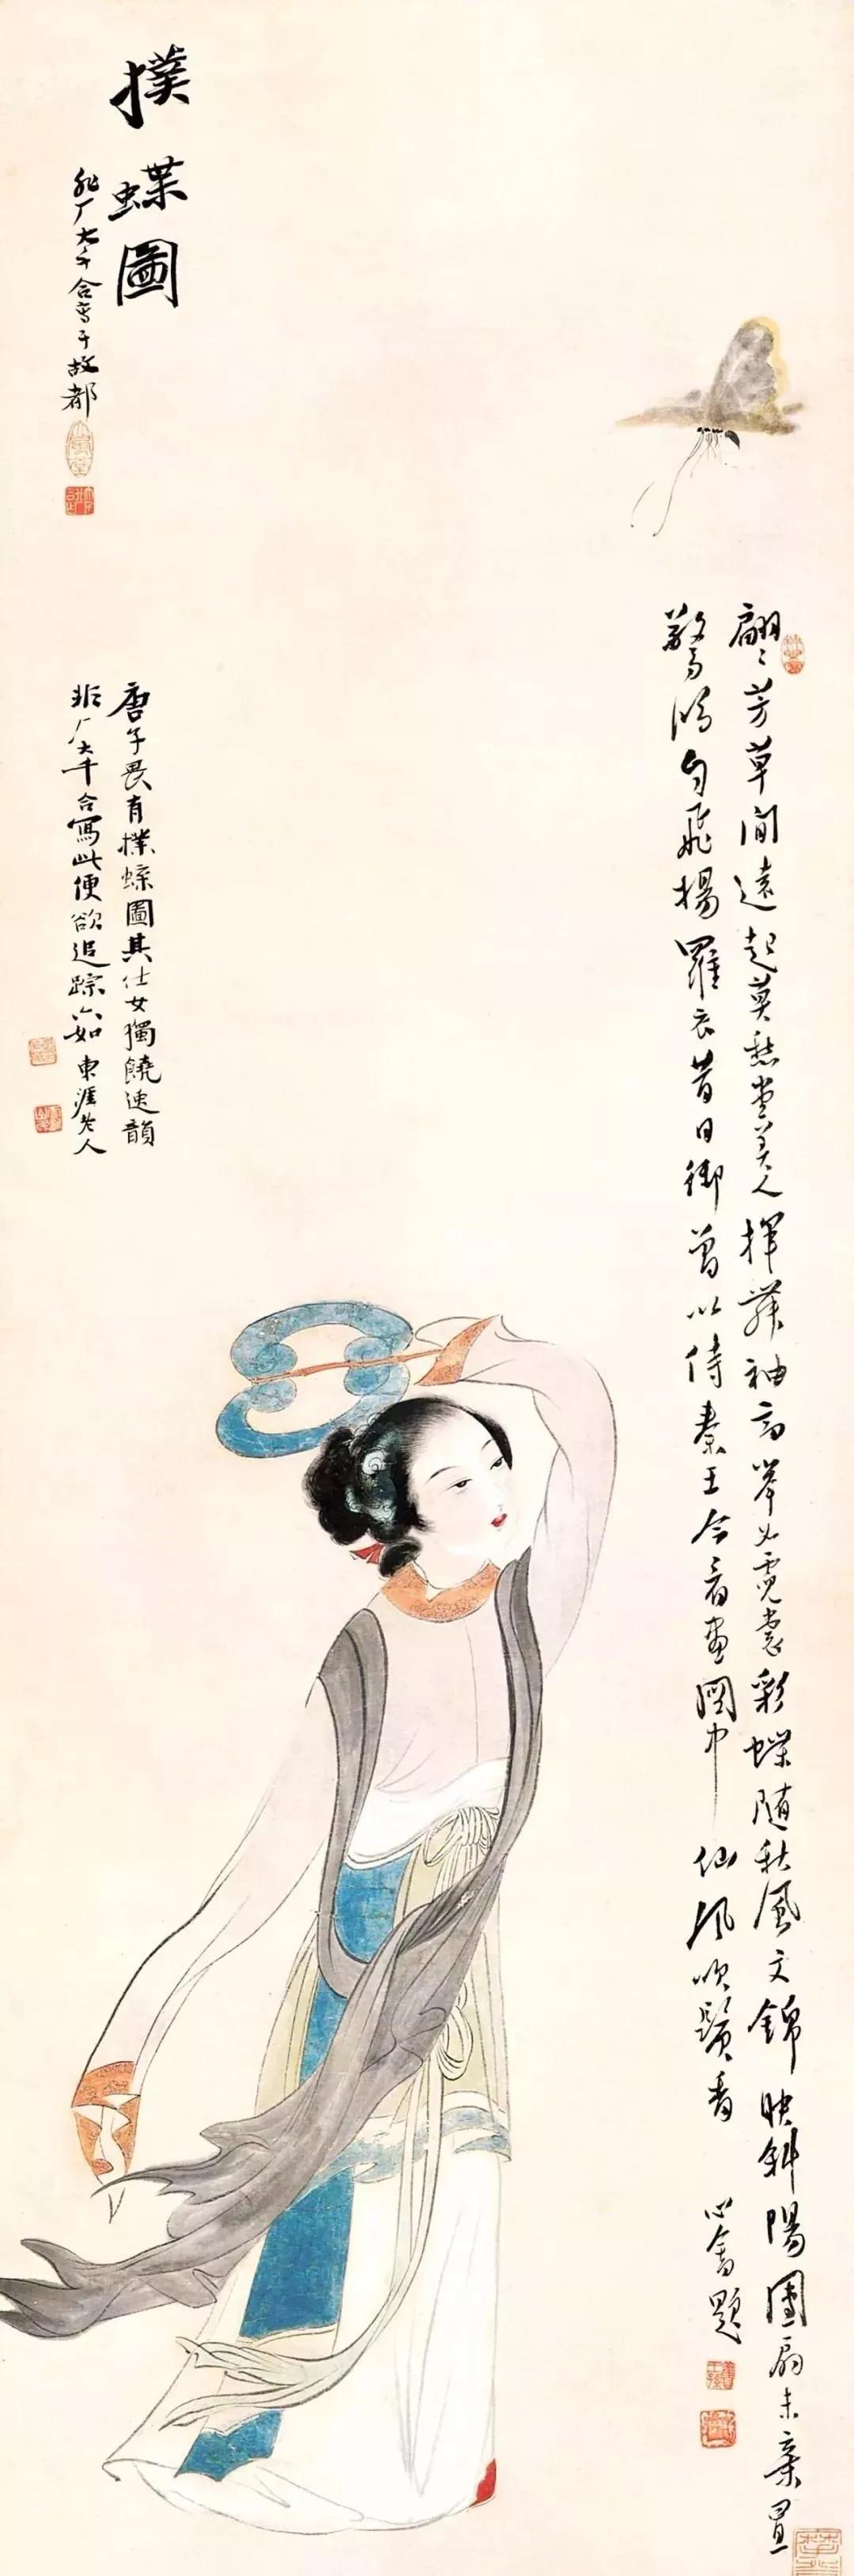 撲蝶圖
非厂大千合寫于故都
翩〻芳草間遠起莫愁堂美人揮舞袖高舉如霓裳彩蝶隨秋風文錦映斜陽團扇未棄置
驚鴻自飛揚羅衣昔日御曾以侍秦王今看畫圖中仙風吹鬢香 心畬題
唐子畏有撲蝶圖其仕女獨饒逸韻
非厂大千合寫此便欲追踪六如 東涯老人